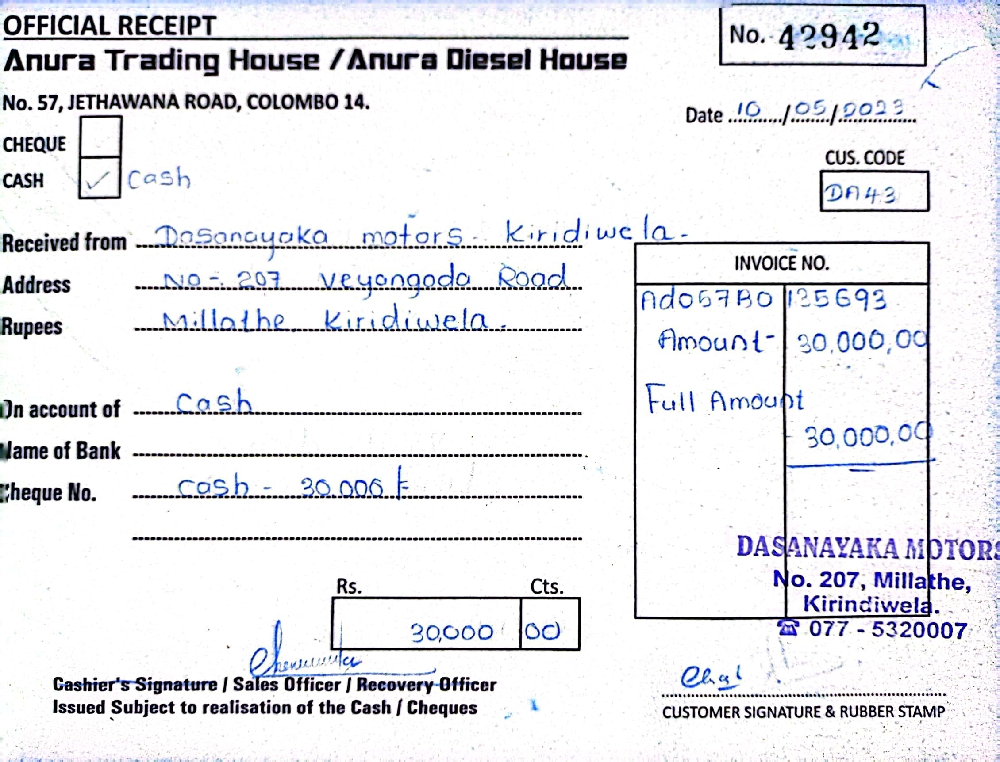 OFFICIAL RECEIPT
No. 42942
Anura Trading House / Anura Diesel House
No. 57, JETHAWANA ROAD, COLOMBO 14.
Date 10/05/2023
CHEQUE
CASH ✓ Cash
CUS. CODE
DA43
Received from Dasanayaka motors - Kiridiwela -
Address No - 207 veyangoda Road
Rupees Millathe Kiridiwela .
INVOICE NO.
Ad057B0 135693
Amount - 30,000,00
Full Amount
30,000,00
On account of Cash
Name of Bank
Cheque No. Cash - 30.000
Rs. Cts.
30,000 00
DASANAYAKA MOTORS
No. 207, Millathe,
Kirindiwela.
☎ 077 - 5320007
Cashier's Signature / Sales Officer / Recovery Officer
Issued Subject to realisation of the Cash / Cheques
CUSTOMER SIGNATURE & RUBBER STAMP